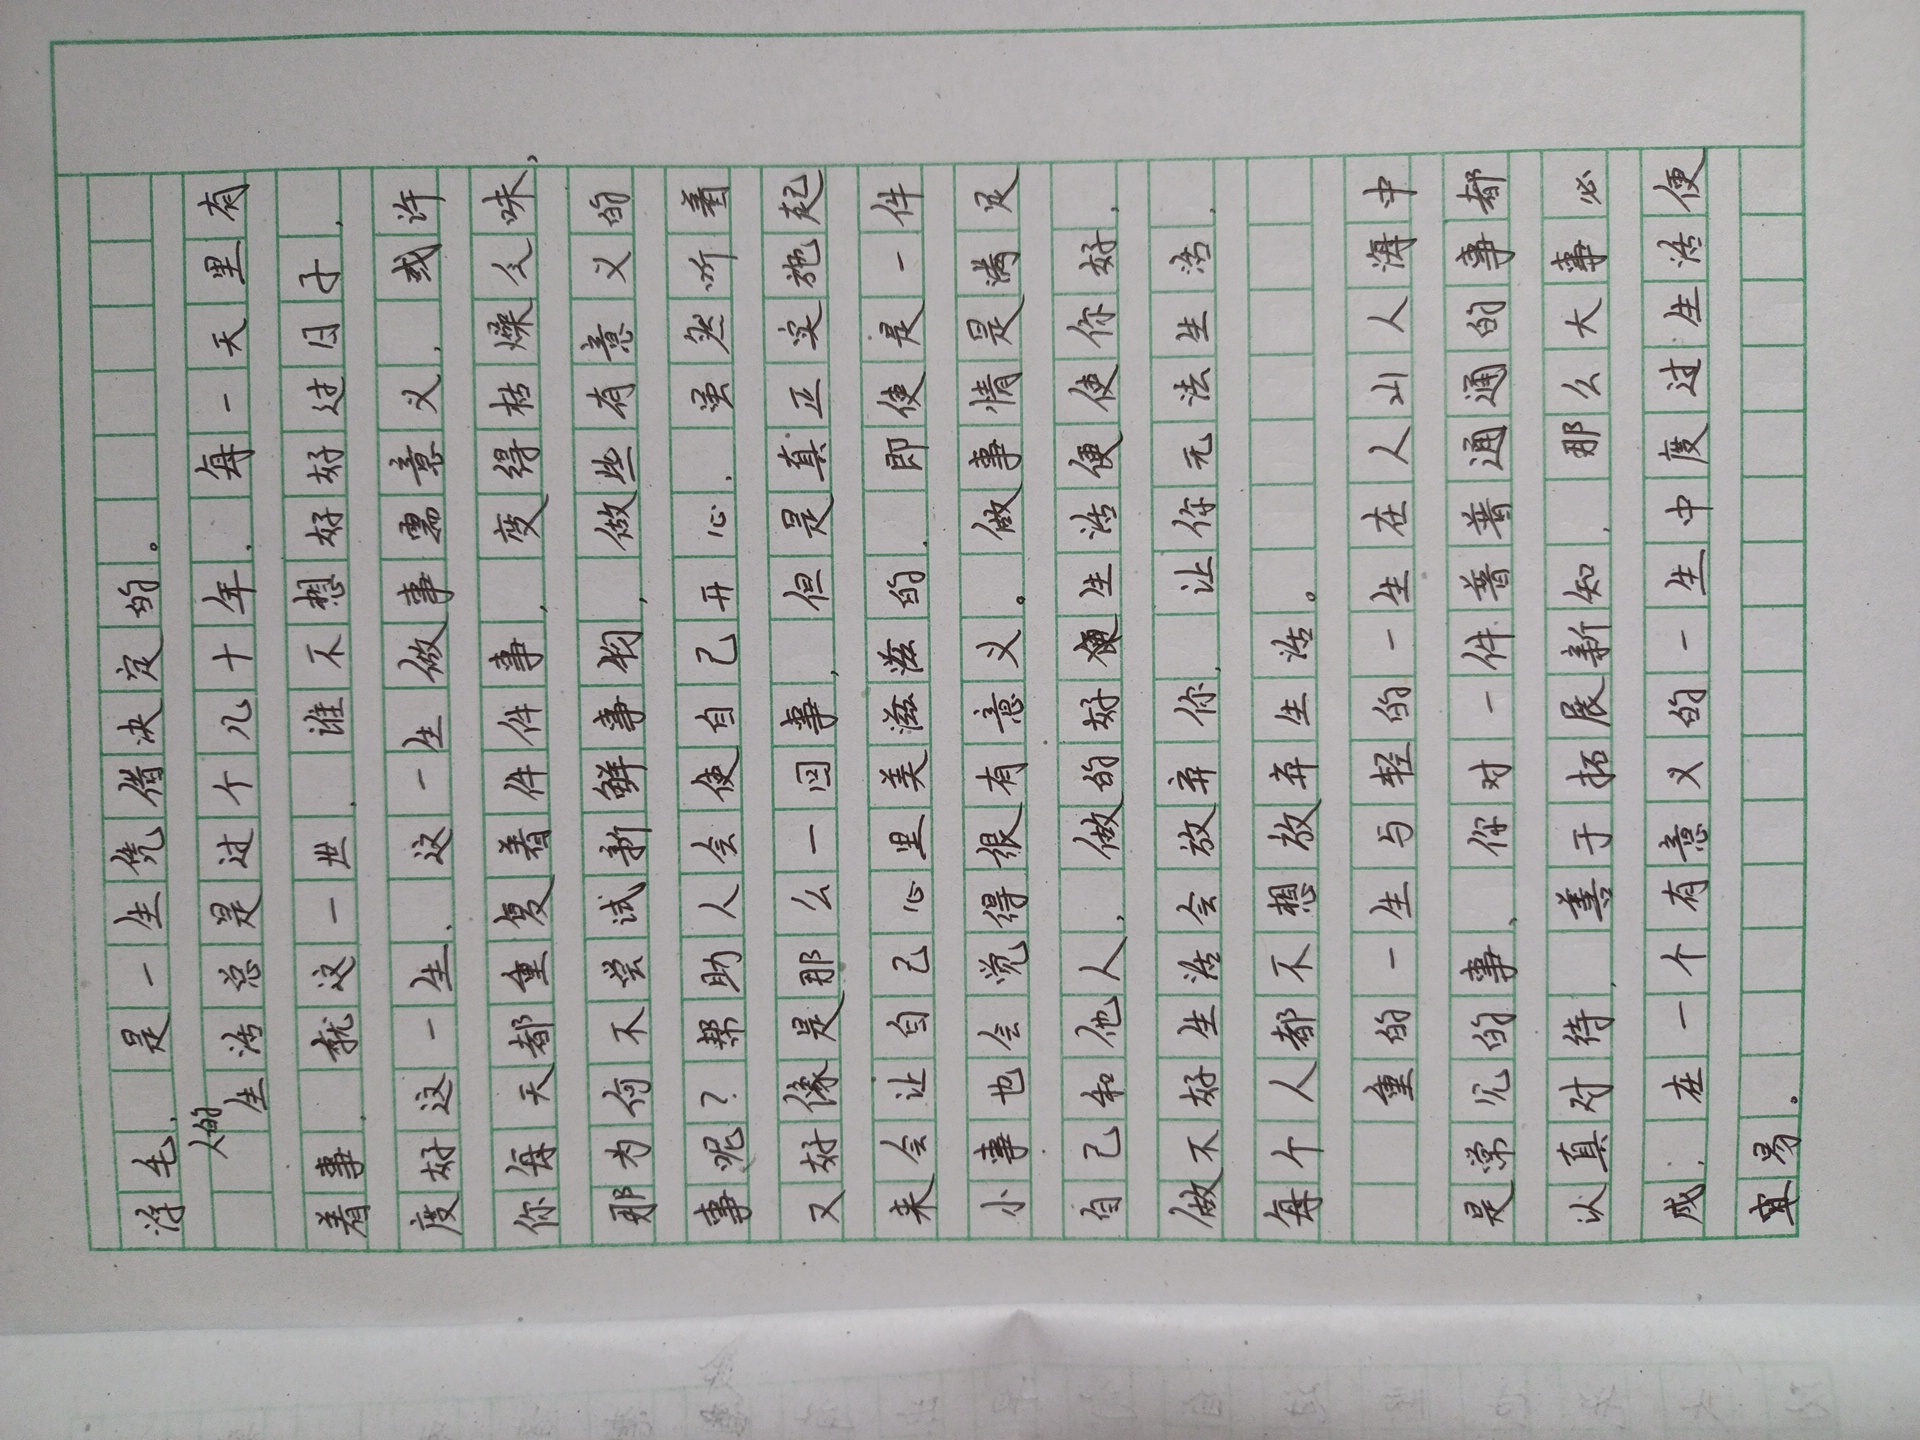 鸿毛，是一生凭借决定的。
人的生活总是过个几十年，每一天里有
着事，就这一世，谁不想好好过日子，
度好这一生，这一生做事需意义，或许
你每天都重复着件件事，变得枯燥乏味，
那为何不尝试新鲜事物，做些有意义的
事呢？帮助人会使自己开心，虽然听着
又好像是那么一回事，但是真正实施起
来会让自己心里美滋滋的，即使是一件
小事也会觉得很有意义。做事情是满足
自己和他人，做的好便生活便使你好，
做不好生活会放弃你，让你无法生活，
每个人都不想放弃生活。
重的一生与轻的一生在人山人海中
是常见的事，你对一件普普通通的事都
认真对待，善于拓展新知，那么大事必
成，在一个有意义的一生中度过生活便
宜易。